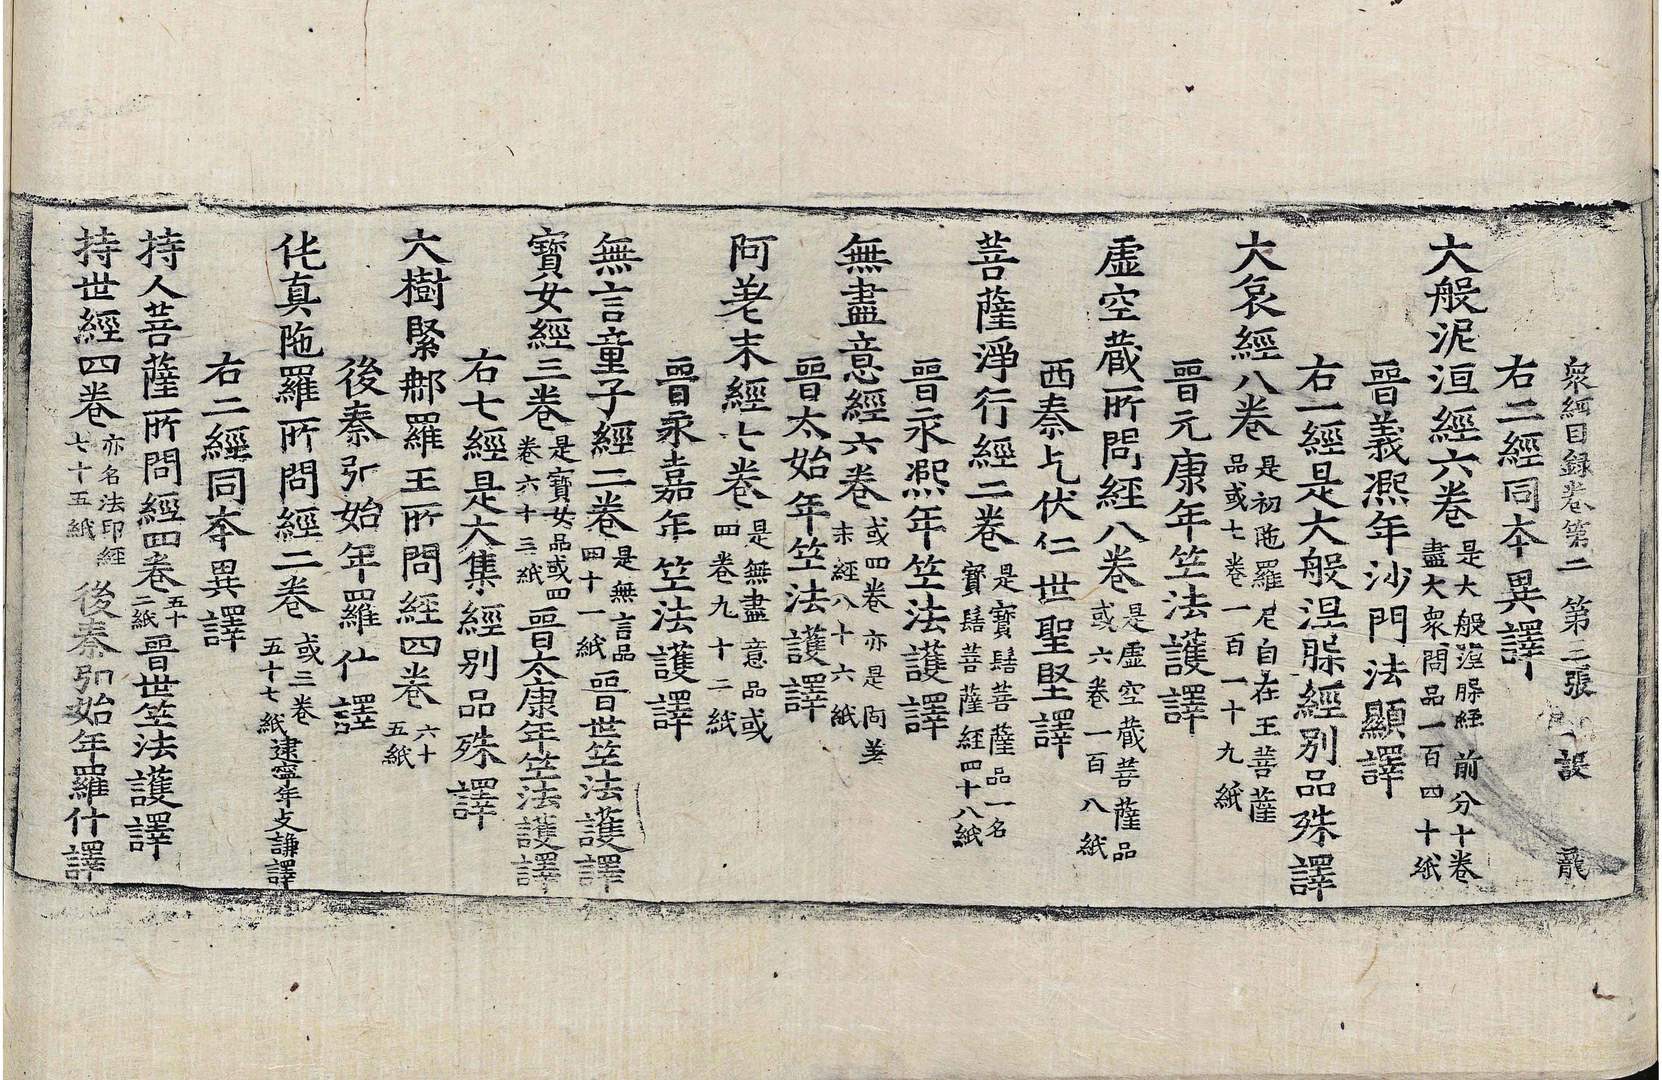 衆經目録卷第二 第二張 設 龍
右二經同本異譯
大般泥洹經六卷 是大般涅槃經前分十卷
盡大衆問品一百四十紙
晉義熙年沙門法顯譯
右一經是大般涅槃經別品殊譯
大哀經八卷 是初陁羅尼自在王菩薩
品或七卷一百一十九紙
晉元康年竺法護譯
虛空藏所問經八卷 是虛空藏菩薩品
或六卷一百八紙
西秦乞伏仁世聖堅譯
菩薩淨行經二卷 是寶髻菩薩品一名
寶髻菩薩經四十八紙
晉永熙年竺法護譯
無盡意經六卷 或四卷亦是阿差
末經八十六紙
晉太始年竺法護譯
阿差末經七卷 是無盡意品或
四卷九十二紙
晉永嘉年竺法護譯
無言童子經二卷 是無言品
四十一紙 晉世竺法護譯
寶女經三卷 是寶女品或四
卷六十三紙 晉太康年竺法護譯
右七經是大集經別品殊譯
大樹緊那羅王所問經四卷 六十
五紙
後秦弘始年羅什譯
伅真陁羅所問經二卷 或三卷
五十七紙 建寧年支謙譯
右二經同本異譯
持人菩薩所問經四卷 五十
二紙 晉世竺法護譯
持世經四卷 亦名法印經
七十五紙 後秦弘始年羅什譯